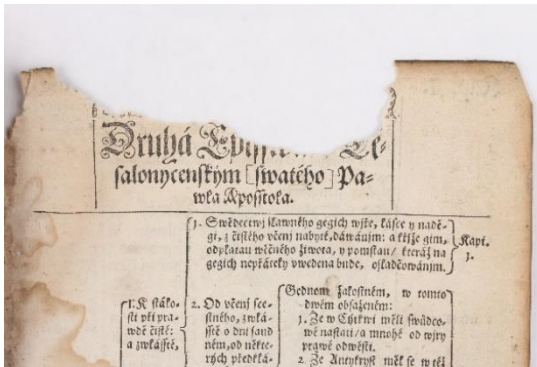 Druhá Te-
salonycenským [swatého] Pa-
wla Aposstola.
1. Swědectwj slawného gegich wjře, lásce y naděgi,
z čistého včenj nabyté, dáwánjm: a křjže gim,
odplatau wěčného žiwota, y pomstau/ kteráž na
gegich nepřátely vwedena bude, oslaďcowánjm.
Kapi.
1.
I. K stálo-
sti při pra-
wdě čisté:
a zwlásstě,
2. Od včenj sce-
stného, zwlá-
sstě o dni saud
ném, od někte-
rých předklá-
Gednom žalostném, w tomto
dwém obsaženém:
1. Že w Cýrkwi měli swůdco-
wé nastati/ a mnohé od wjry
prawé odwésti.
2. Že Antykryst měl se w též